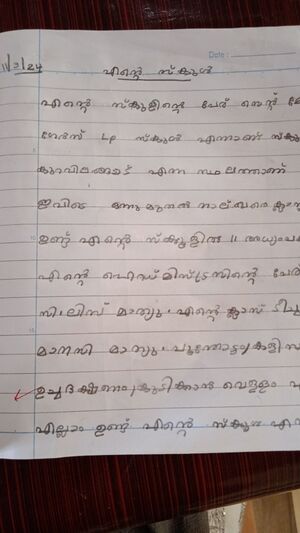 Date :
11/3/24
എന്റെ സ്കൂൾ
എന്റെ സ്കൂളിന്റെ പേര് സെന്റ്
ഗേൾസ് LP സ്കൂൾ എന്നാണ്
കുറവിലങ്ങാട് എന്ന സ്ഥലത്താണ്
ഇവിടെ ഒന്നുമുതൽ നാല്വരെ
ഉണ്ട് എന്റെ സ്ക്കൂളിൽ 11
എന്റെ ഹെഡ്മിസ്ട്രസിന്റെ പേര്
സി. ലിസ് മാത്യു. എന്റെ ക്ലാസ് ടീച്ച
മാനസി മാത്യു. പൂന്തോട്ടം, കളിസ
ഉച്ചഭക്ഷണം, കുടിക്കാൻ വെള്ളം
എല്ലാം ഉണ്ട് എന്റെ